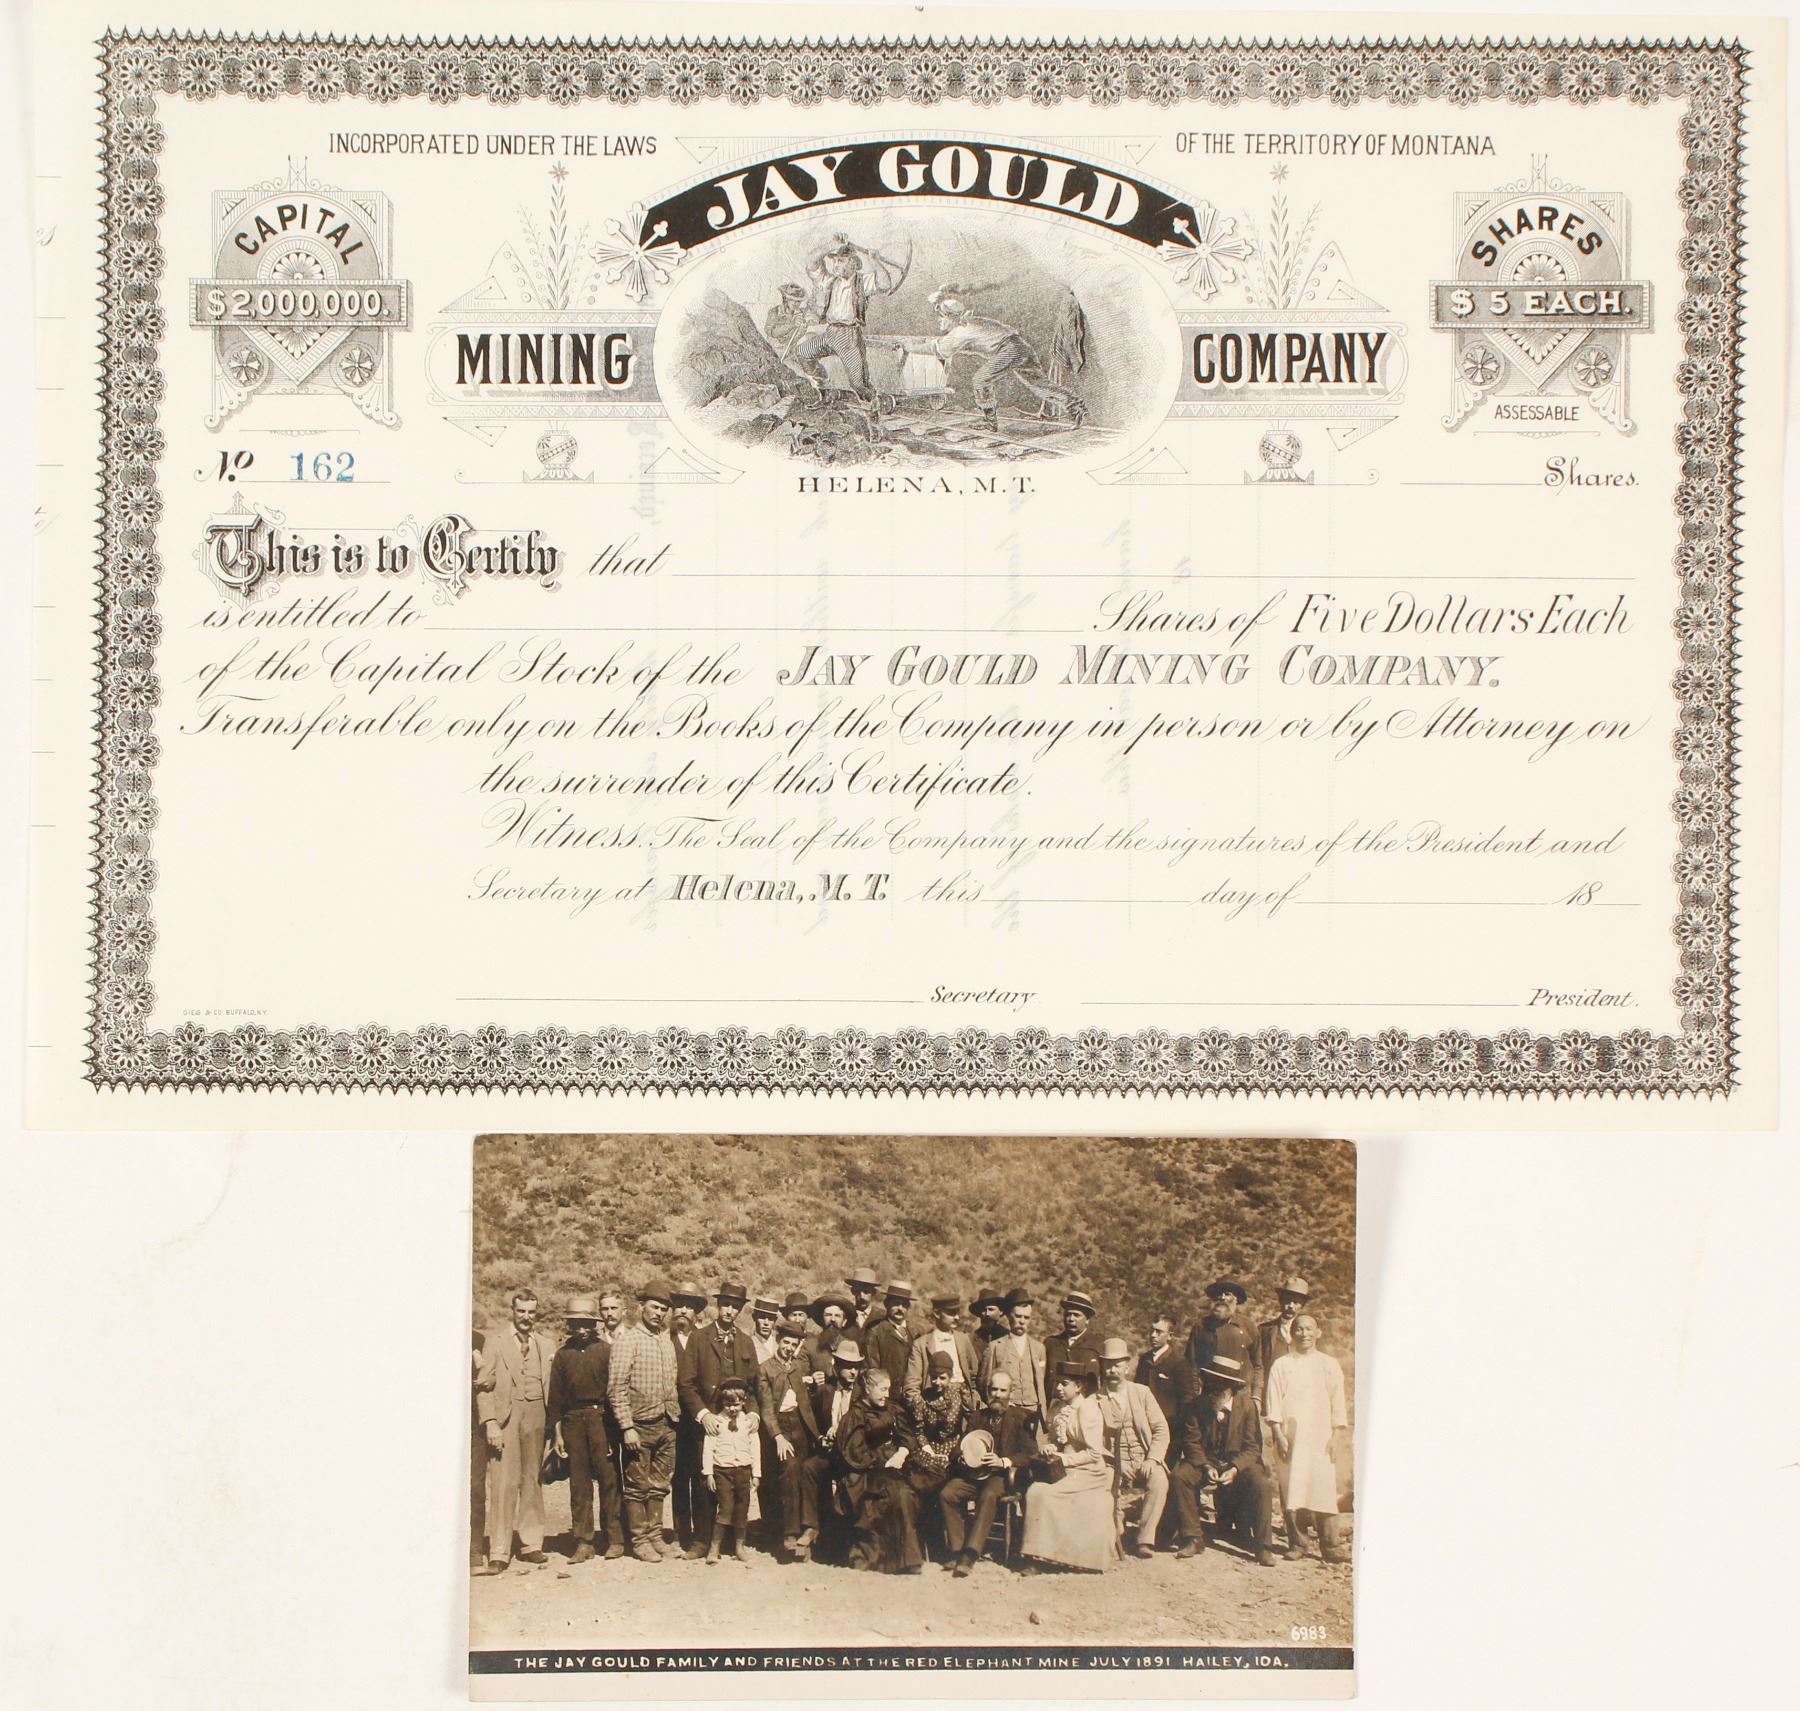 INCORPORATED UNDER THE LAWS OF THE TERRITORY OF MONTANA
JAY GOULD
CAPITAL
$2,000,000.
SHARES
$ 5 EACH.
MINING COMPANY
ASSESSABLE
No. 162
HELENA, M.T.
Shares.
This is to Certify that
is entitled to Shares of Five Dollars Each
of the Capital Stock of the JAY GOULD MINING COMPANY.
Transferable only on the Books of the Company in person or by Attorney on
the surrender of this Certificate.
Witness. The Seal of the Company and the signatures of the President and
Secretary at Helena, M. T. this day of 18
Secretary President.
GIES & CO. BUFFALO, N.Y.
6983
THE JAY GOULD FAMILY AND FRIENDS AT THE RED ELEPHANT MINE JULY 1891 HAILEY, IDA.